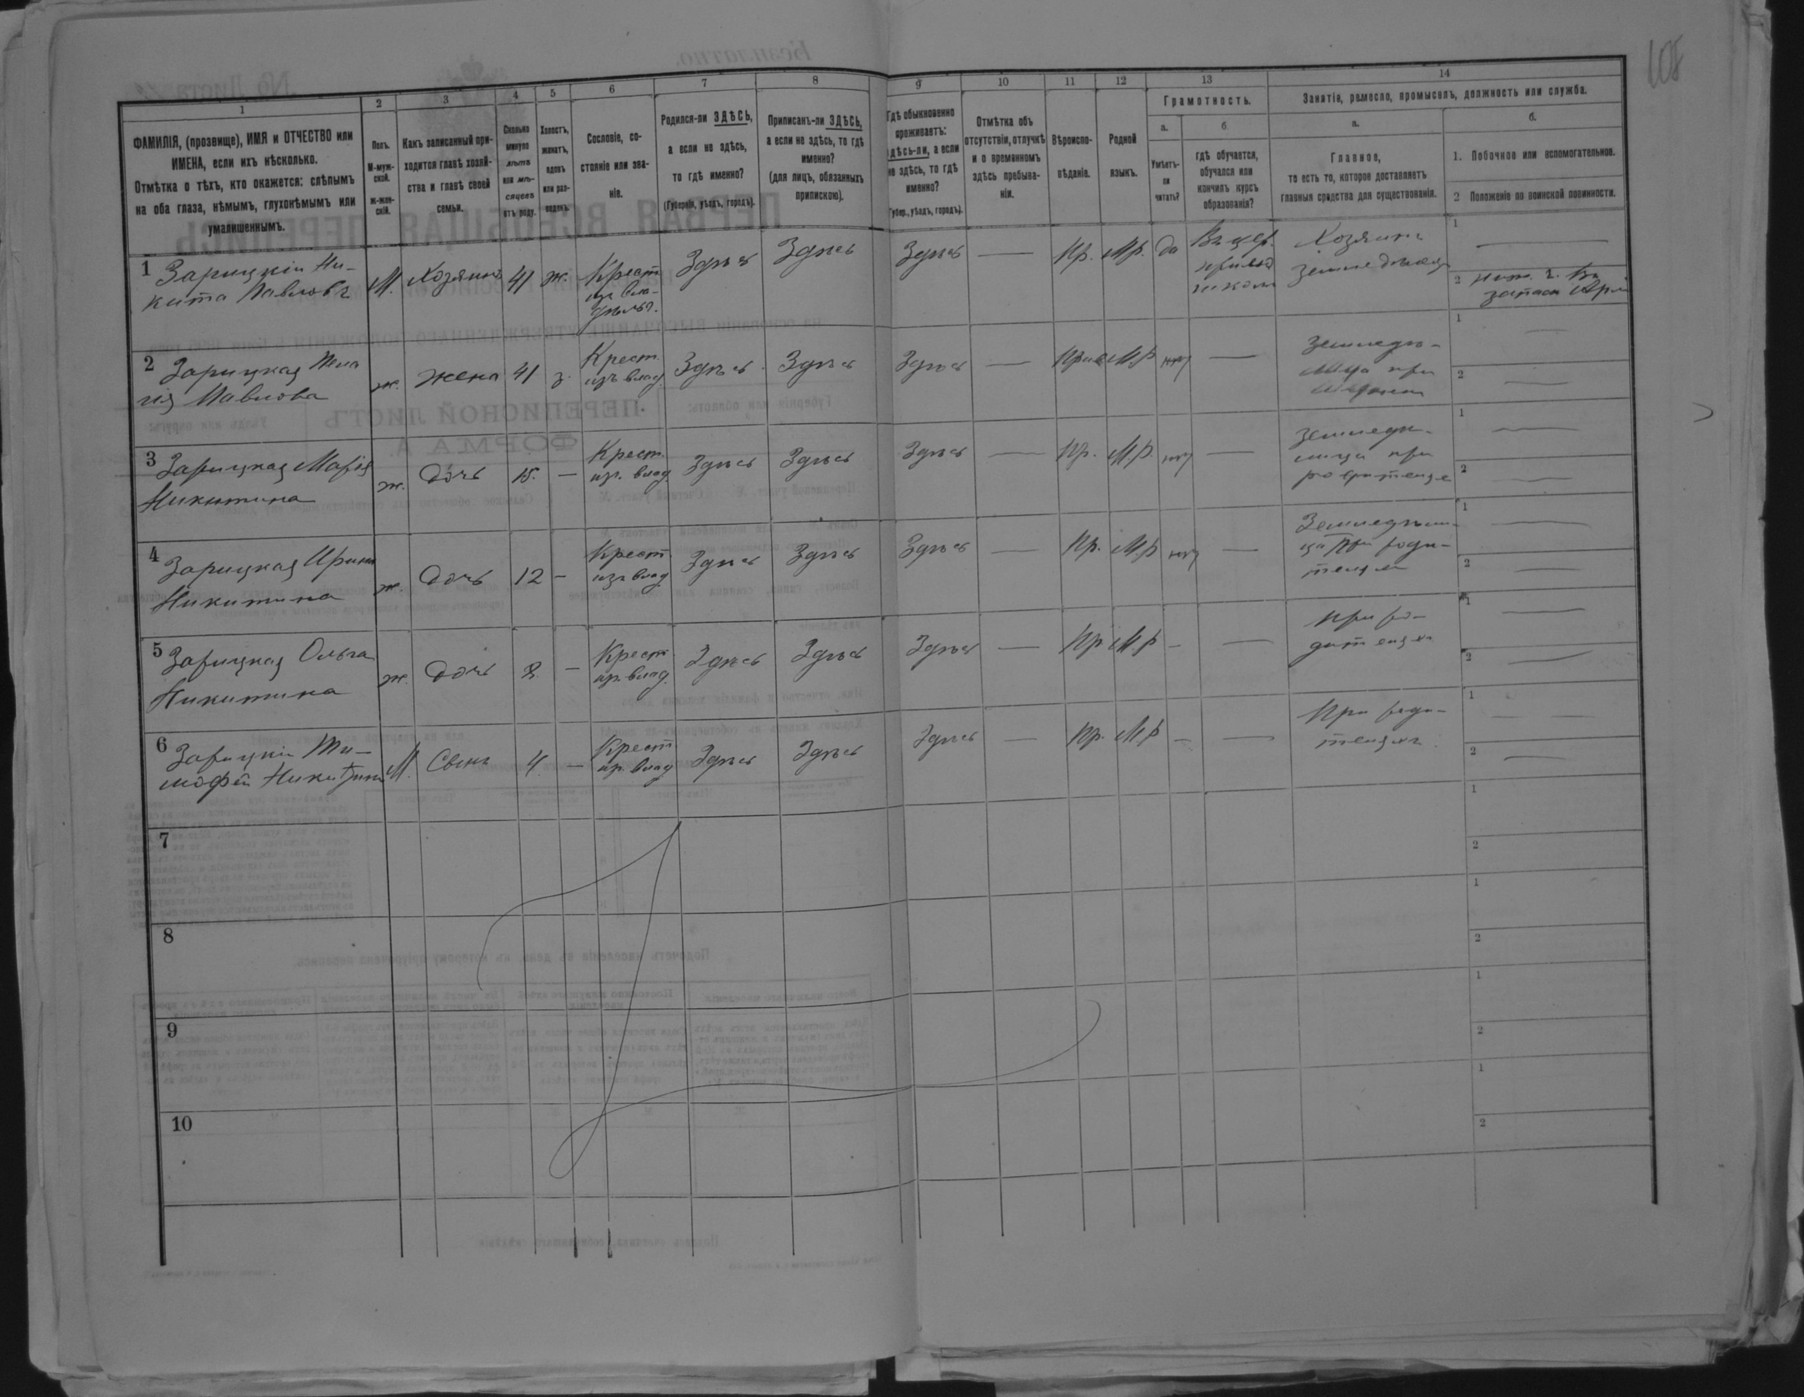 108
1
2
3
4
5
6
7
8
9
10
11
12
13
14
ФАМИЛІЯ, (прозвище), ИМЯ и ОТЧЕСТВО или
ИМЕНА, если ихъ нѣсколько.
Отмѣтка о тѣхъ, кто окажется: слѣпымъ
на оба глаза, нѣмымъ, глухонѣмымъ или
умалишеннымъ.
Полъ.
М-муж-
ской.
Ж-жен-
скій.
Какъ записанный при-
ходится главѣ хозяй-
ства и главѣ своей
семьи.
Сколько
минуло
лѣтъ
или мѣ-
сяцевъ
отъ роду.
Холостъ,
женатъ,
вдовъ
или раз-
веденъ.
Сословіе, со-
стояніе или зва-
ніе.
Родился-ли ЗДѢСЬ,
а если не здѣсь,
то гдѣ именно?
(Губернія, уѣздъ, городъ).
Приписанъ-ли ЗДѢСЬ,
а если не здѣсь, то гдѣ
именно?
(для лицъ, обязанныхъ
припискою).
Гдѣ обыкновенно
проживаетъ:
здѣсь-ли, а если
не здѣсь, то гдѣ
именно?
(Губер., уѣздъ, городъ).
Отмѣтка объ
отсутствіи, отлучкѣ
и о временномъ
здѣсь пребыва-
ніи.
Вѣроиспо-
вѣданіе.
Родной
языкъ.
Грамотность.
а.
Умѣетъ-
ли
читать?
б
гдѣ обучается,
обучался или
кончилъ курсъ
образованія?
Занятіе, ремесло, промыселъ, должность или служба.
а.
Главное,
то есть то, которое доставляетъ
главныя средства для существованія.
б.
1. Побочное или вспомогательное.
2 Положеніе по воинской повинности.
1 Зарицкій Ни-
кита Павловъ
М. Хозяинъ 41 ж. Крест. изъ вла- Здѣсь Здѣсь Здѣсь — Пр. М.р. да
Хозяинъ
1 —
2
2 Зарицкая
Павлова
ж. жена 41 з. Крест. изъ влад. Здѣсь Здѣсь Здѣсь — М.р. нѣт —
1 —
2 —
3 Зарицкая Марія
Никитина
ж. Дочь 15. — Крест. изъ влад. Здѣсь Здѣсь Здѣсь — Пр. М.р. нѣт —
1 —
2 —
4 Зарицкая Ирина
Никитина
ж. Дочь 12 — Крест. изъ влад. Здѣсь Здѣсь Здѣсь — Пр. М.р. нѣт —
при роди-
1 —
2 —
5 Зарицкая Ольга
Никитина
ж. Дочь — Крест. из. влад. Здѣсь Здѣсь Здѣсь — Пр М.р — —
При ро-
дителяхъ
1 —
2 —
6 Зарицкій Ти-
мофей Никитинъ
М. Сынъ 4. — Крест. из. влад Здѣсь Здѣсь Здѣсь — Пр. М.р — —
При роди-
теляхъ.
1 — —
2 —
7
1
2
8
1
2
9
1
2
10
1
2